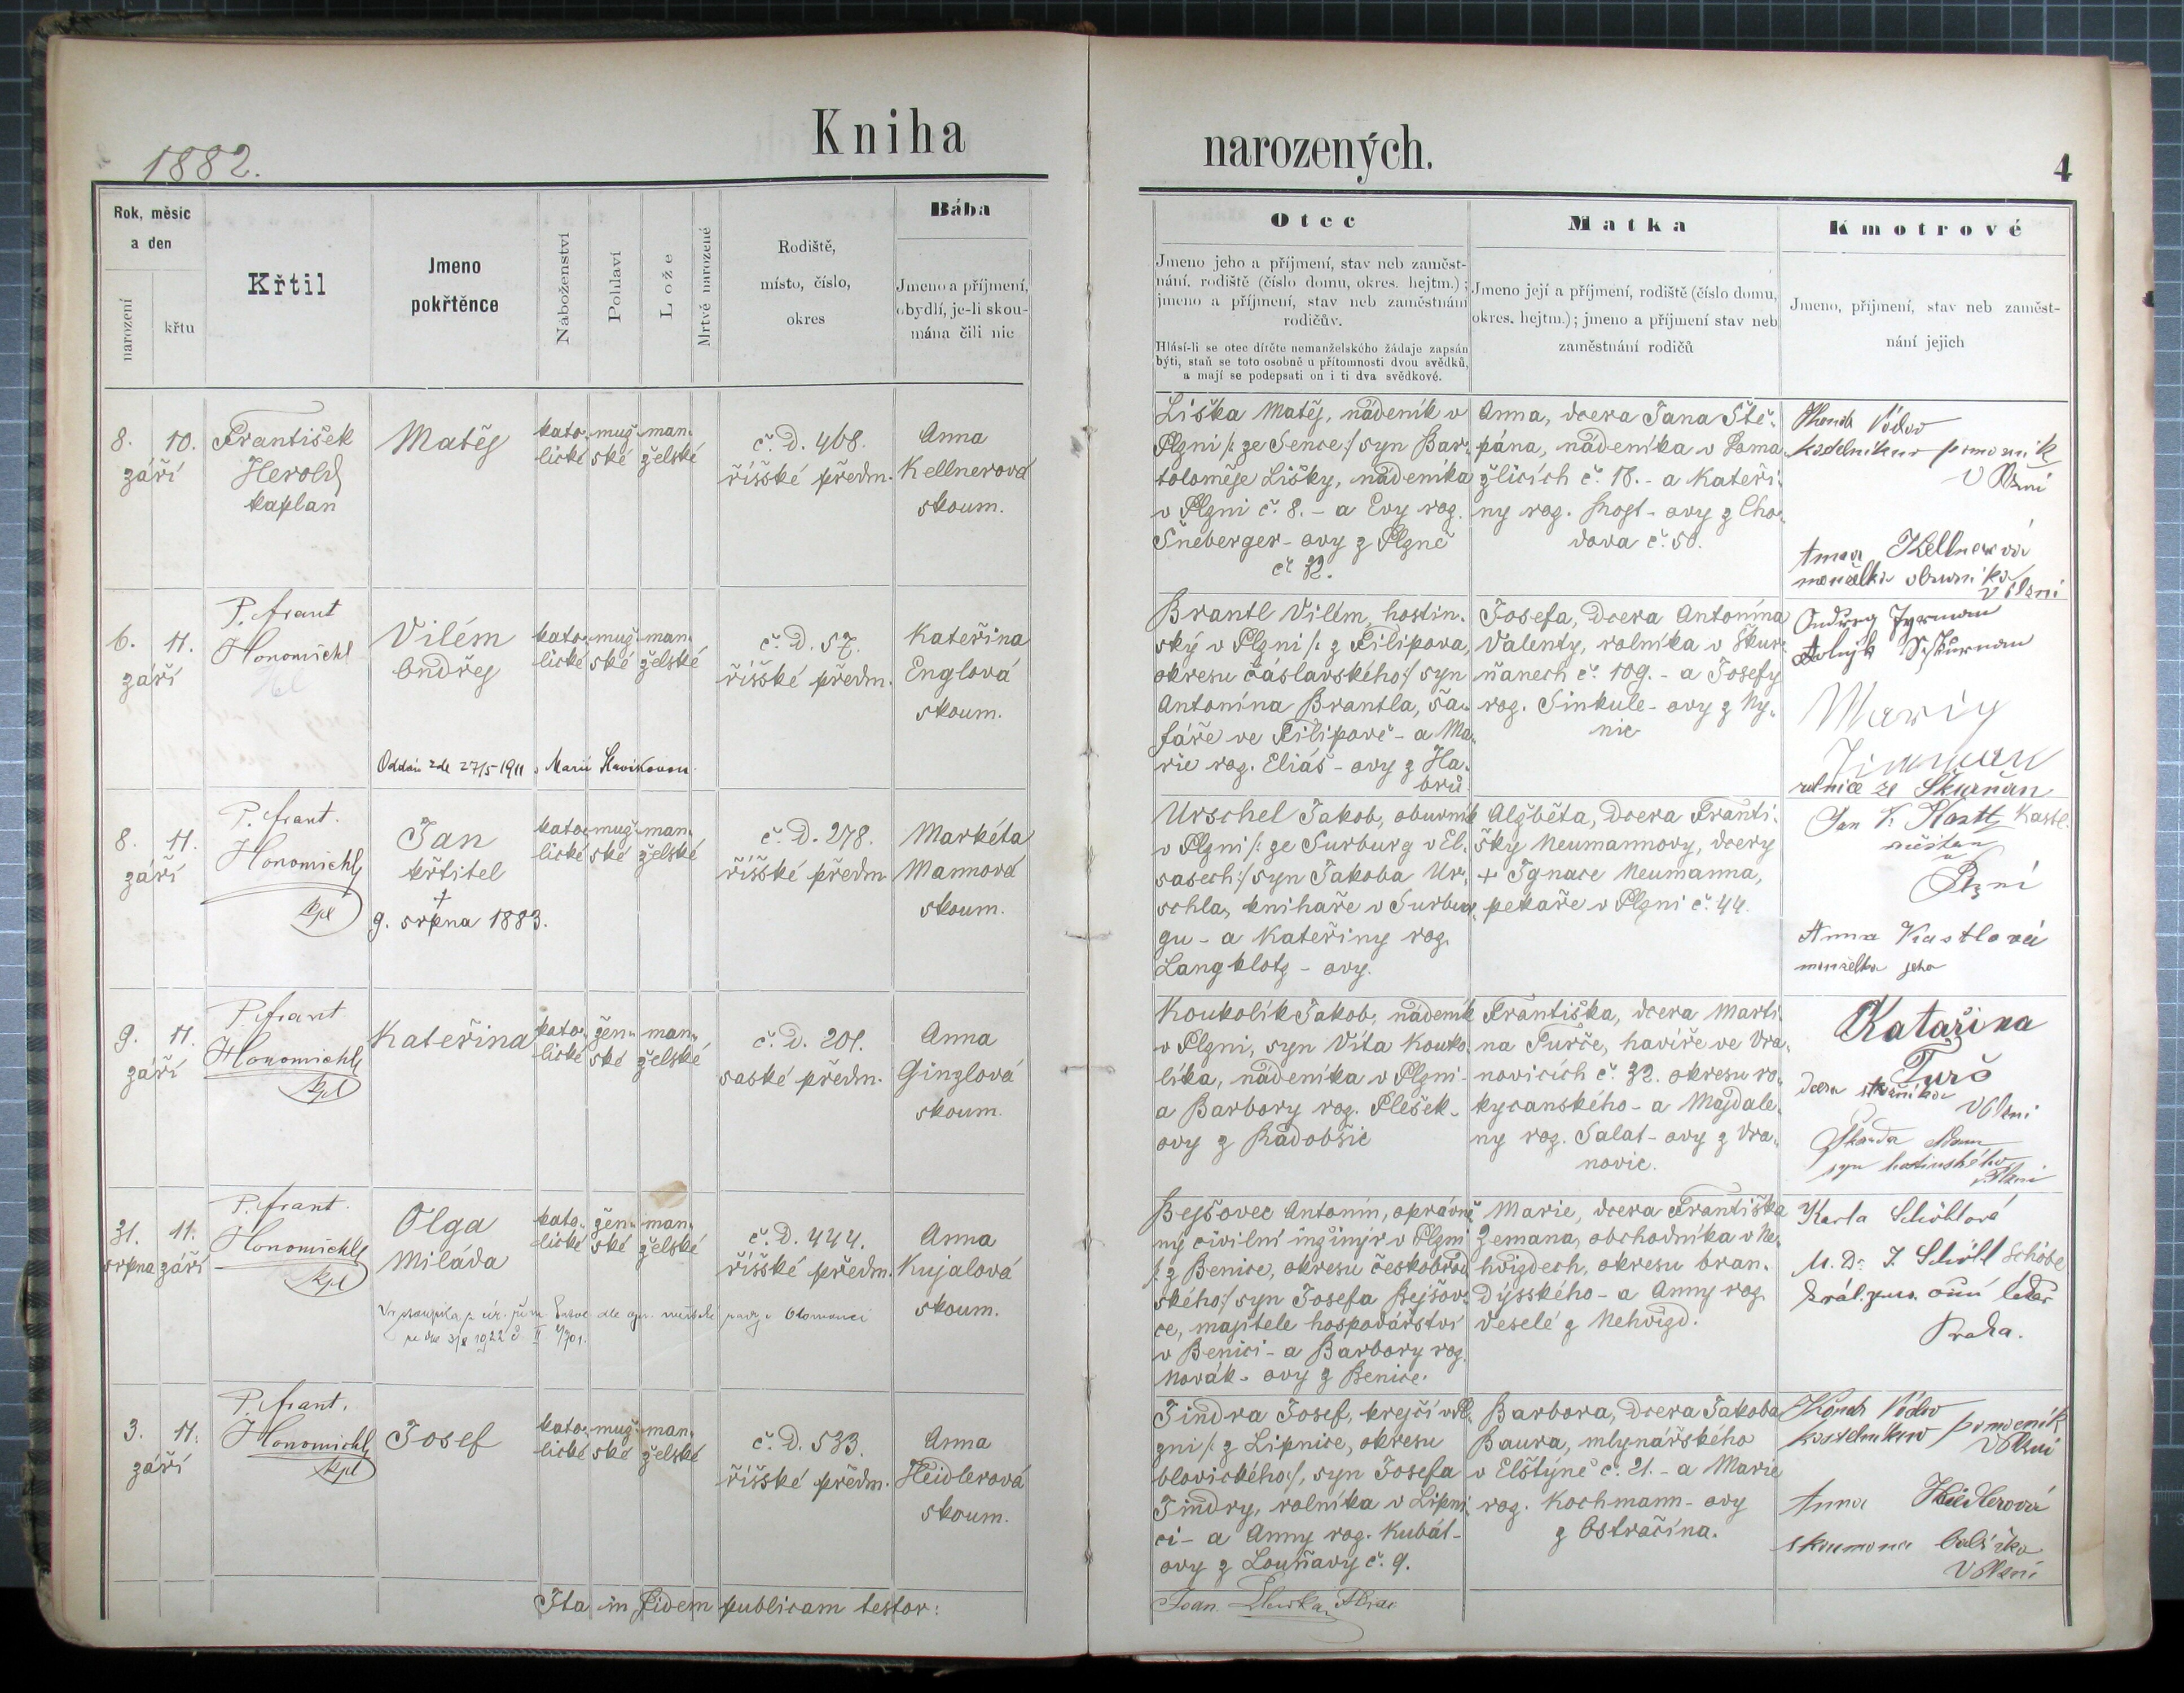 Kniha
narozených.
1882.
4
Rok, měsíc
a den
narození
křtu
Křtil
Jmeno
pokřtěnce
Náboženství
Pohlaví
Lože
Mrtvě narozené
Rodiště,
místo, číslo,
okres
Bába
Jmeno a příjmení,
obydlí, je-li skou-
mána čili nic
Otec
Jmeno jeho a příjmení, stav neb zaměst-
nání, rodiště (číslo domu, okres. hejtm.);
jmeno a příjmení, stav neb zaměstnání
rodičův.
Hlásí-li se otec dítěte nemanželského žádaje zapsán
býti, staň se toto osobně u přítomnosti dvou svědků,
a mají se podepsati on i ti dva svědkové.
Matka
Jmeno její a příjmení, rodiště (číslo domu,
okres. hejtm.); jmeno a příjmení stav neb
zaměstnání rodičů
Kmotrové
Jmeno, přijmení, stav neb zaměst-
nání jejich
8. 10.
září
František
Herold
kaplan
Matěj
kato-
lické
muž-
ské
man-
želské
č. D. 468.
říšské předm.
Anna
Kellnerová
skoum.
Liška Matěj, nádeník v
Plzni /: ze Sence :/ syn Bar-
toloměje Lišky, nádeníka
v Plzni č. 8. - a Evy roz.
Šneberger-ovy z Plzně
č. 32.
Anna, dcera Jana Ště-
pána, nádeníka v Doma-
žlicích č. 18. - a Kateři-
ny roz. Pogt-ovy z Cho-
dova č. 50.
v Plzni
Anna Kellnerová
manželka obuvníka
v Plzni
6. 11.
září
P. Frant
Honomichl
Vilém
Ondřej
kato-
lické
muž-
ské
man-
želské
č. D. 57.
říšské předm.
Kateřina
Englová
skoum.
Oddán zde 27/5-1911 s Marií
Brantl Vilém, hostin-
ský v Plzni /: z Filipova,
okresu čáslavského :/ syn
Antonína Brantla, ša-
fáře ve Filipově - a Ma-
rie roz. Eliáš-ovy z Ha-
brů.
Josefa, dcera Antonína
Valenty, rolníka v Škur-
ňanech č. 109. - a Josefy
roz. Sinkule-ovy z Ny-
nic
Ondřej
Mariy
rolnice ze Škurňan
8. 11.
září
P. Frant.
Honomichl
kpl
Jan
křtitel
†
9. srpna 1883.
kato-
lické
muž-
ské
man-
želské
č. D. 278.
říšské předm
Markéta
Mannová
skoum.
Urschel Jakob, obuvník
v Plzni /: ze Surburg v El-
sasech :/ syn Jakoba Ur-
schla, knihaře v Surbur-
gu - a Kateřiny roz.
Langklotz-ovy.
Alžběta, dcera Franti-
šky Neumannovy, dcery
+ Ignace Neumanna,
pekaře v Plzni č. 44.
Kastl
měšťan
Plzni
Anna Kastlová
manželka jeho
9. 11.
září
P. Frant
Honomichl
kpl
Kateřina
kato-
lické
žen-
ské
man-
želské
č. D. 201.
saské předm.
Anna
Ginzlová
skoum.
Koukolík Jakob, nádeník
v Plzni, syn Víta Kouko-
líka, nádeníka v Plzni -
a Barbory roz. Plešek-
ovy z Radobšic
Františka, dcera Marti-
na Turče, havíře ve Vra-
novicích č. 32. okresu ro-
kycanského - a Majdale-
ny roz. Salat-ovy z Vra-
novic.
Katařina
Turč
dcera
v Plzni
syn hostinského
v Plzni
31. 11.
srpna září
P. Frant.
Honomichl
kpl
Olga
Miláda
kato-
lické
žen-
ské
man-
želské
č. D. 444.
říšské předm.
Anna
Kujalová
skoum.
Bejšovec Antonín, oprávně-
ný civilní inžinýr v Plzni
/: z Benice, okresu českobrod-
ského :/ syn Josefa Bejšov-
ce, majitele hospodářství
v Benici - a Barbory roz.
Novák-ovy z Benice.
Marie, dcera Františka
Zemana, obchodníka v Ne-
hvizdech, okresu bran-
dýsského - a Anny roz.
Veselé z Nehvizd.
Karla Schöblová
M. Dr. J. Schöbl Schöbl
Praha.
3. 11.
září
P. Frant.
Honomichl
kpl
Josef
kato-
lické
muž-
ské
man-
želské
č. D. 533.
říšské předm.
Anna
Heidlerová
skoum.
Jindra Josef, krejčí v Pl-
zni /: z Lipnice, okresu
blovického :/, syn Josefa
Jindry, rolníka v Lipni-
ci - a Anny roz. Kubát-
ovy z Louňavy č. 9.
Barbora, dcera Jakoba
Baura, mlynářského
v Elštýně č. 21. - a Marie
roz. Kochmann-ovy
z Ostračína.
pomocník
v Plzni
Anna Heidlerová
skoumana babička
v Plzni
Ita in fidem publicam testor:
Joan.